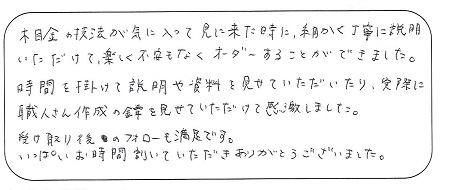 木目金の技法が気に入って見に来た時に、細かく丁寧に説明
いただけて、楽しく不安もなくオーダーすることができました。
時間を掛けて説明や資料を見せていただいたり、実際に
職人さん作成の鐔を見せていただけて感激しました。
受け取り後のフォローも満足です。
いっぱいお時間割いていただきありがとうございました。